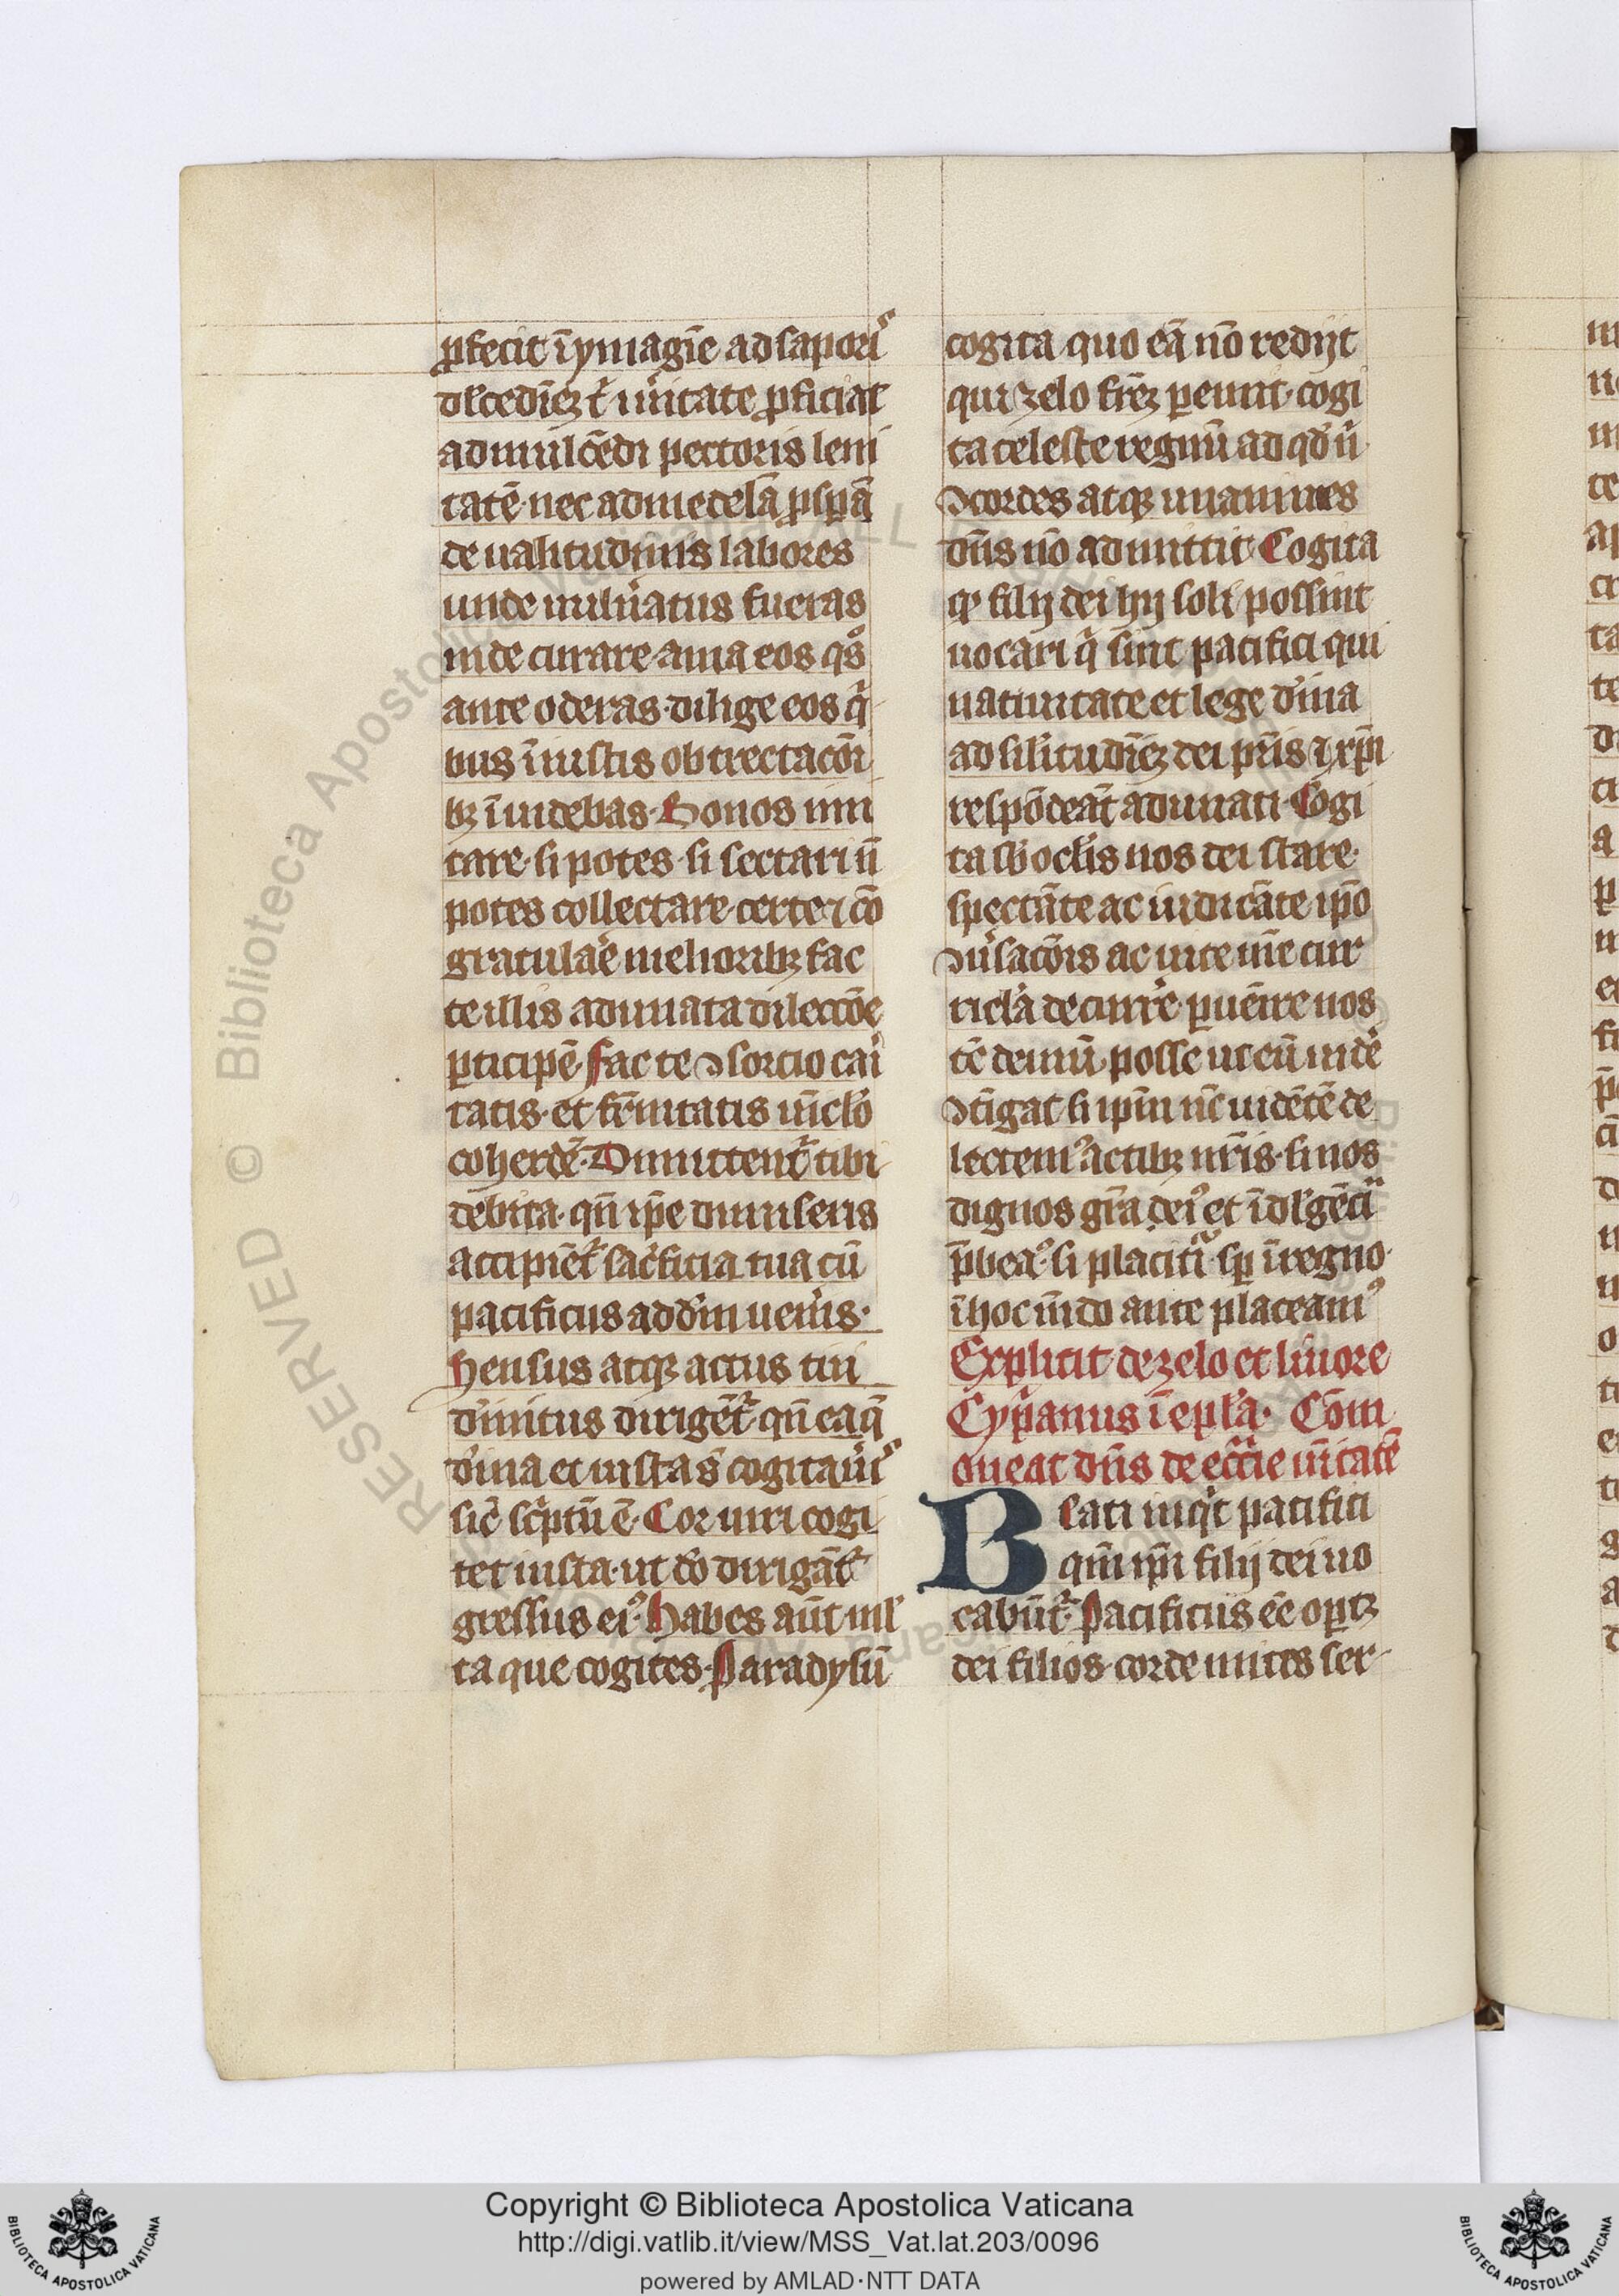 ꝓfecit ī ymagīe ad sapor̄ꝰ
dulcedīeꝫ t̄ ūitate ꝓficiat
ad mulcēdi pectoris leni
tatē nec ad medelā ꝓspā
de ualitudinis labores
unde uulnatus fueras
inde curare ama eos qͦs
ante oderas dilige eos qͥ
bus īiustis obtrectacōi
bꝫ īuidebas. Bonos imi
tare. si potes. si sectari n̄
potes collectare certe ⁊ cō
gratulae melioribꝫ fac
te illis adunata dileccōe
ꝑticipē. fac te ꝯsorcio cai
tatis. et frn̄itatis uinclo
coherdē. Dimittentᷣ tibi
debita. qn̄ ip̄e dimiseris
accipientᷣ sacficia tua cū
pacificus ad dm̄ uenis.
Sensus atqꝫ actus tui
diuinitus dirigentᷣ qn̄ ea q̄
diuina et iusta s̄ cogitauīꝰ
sic̄ scͥptū ē. Cor uiri cogi
tet iusta. ut do dirigātᷣ
gressus eiꝰ. Habes aut̄ ml̄
ta que cogites. Paradysū
cogita quo eā nō redijt
qui zelo fr̄eꝫ ꝑeunt. cogi
ta celeste regnū ad qd̄ n̄
ꝯcordes atqꝫ unanimes
dn̄s nō admittit. Cogita
qꝭ filij dei hij soli possint
uocari qͥ sint pacifici qui
natiuitate et lege diuina
ad silitudīeꝫ dei pr̄is ⁊ xp̄i
respōdeāt adunati. Cogi
ta sb oclis nos dei stare.
spectāte ac iudicāte ip̄o
ꝯuͥsacōis ac uite ūte cur
ricla decurre. ꝑuēire nos
tē demū posse ut eū uide
ꝯtīgat si ip̄m nc̄ uidētē de
lectemꝰ actibꝫ nr̄is. si nos
dignos gr̄a deiꝰ et īdulgēci
p̄beaꝰ. si placituͥ sp̄ ī regno.
ī hoc mūdo ante placeamꝰ
Explicit de zelo et liuore
Cypͥanus ī epl̄a. Com
oueat dn̄s de eccie ūitatē
Beati inqͥt pacifici
qm̄ ip̄i filij dei uo
cabūtᷣ. Pacificus ee oꝑtꝫ
dei filios corde mites ser
Copyright © Biblioteca Apostolica Vaticana
http://digi.vatlib.it/view/MSS_Vat.lat.203/0096
powered by AMLAD·NTT DATA
BIBLIOTECA APOSTOLICA VATICANA
BIBLIOTECA APOSTOLICA VATICANA